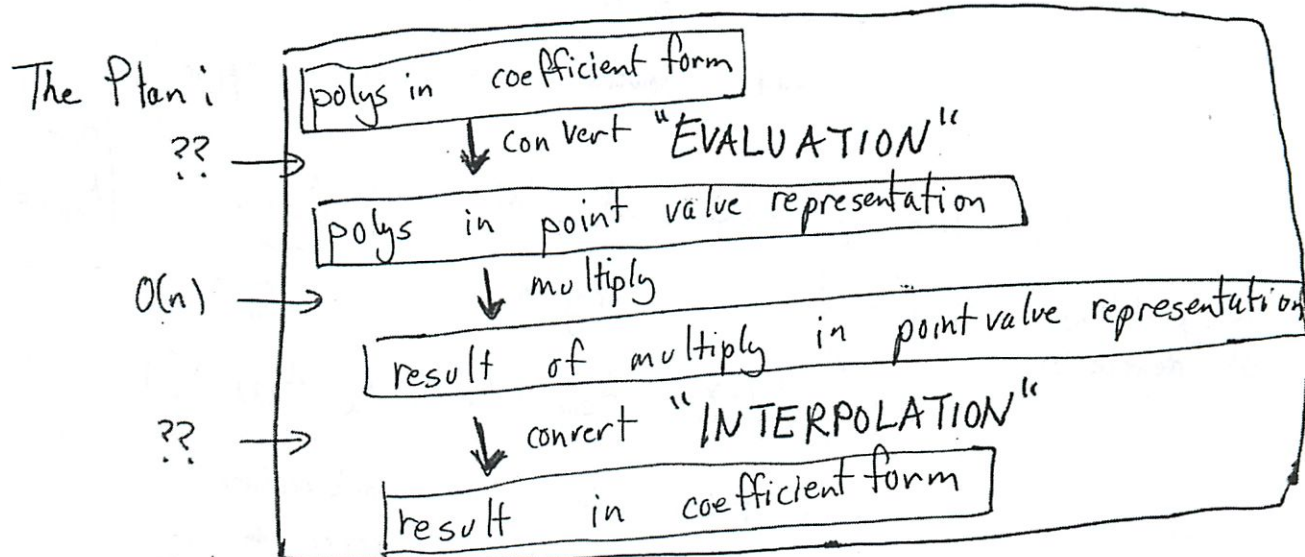 The Plan:
polys in coefficient form
?? → ↓ convert "EVALUATION"
polys in point value representation
O(n) → ↓ multiply
result of multiply in point value representation
?? → ↓ convert "INTERPOLATION"
result in coefficient form